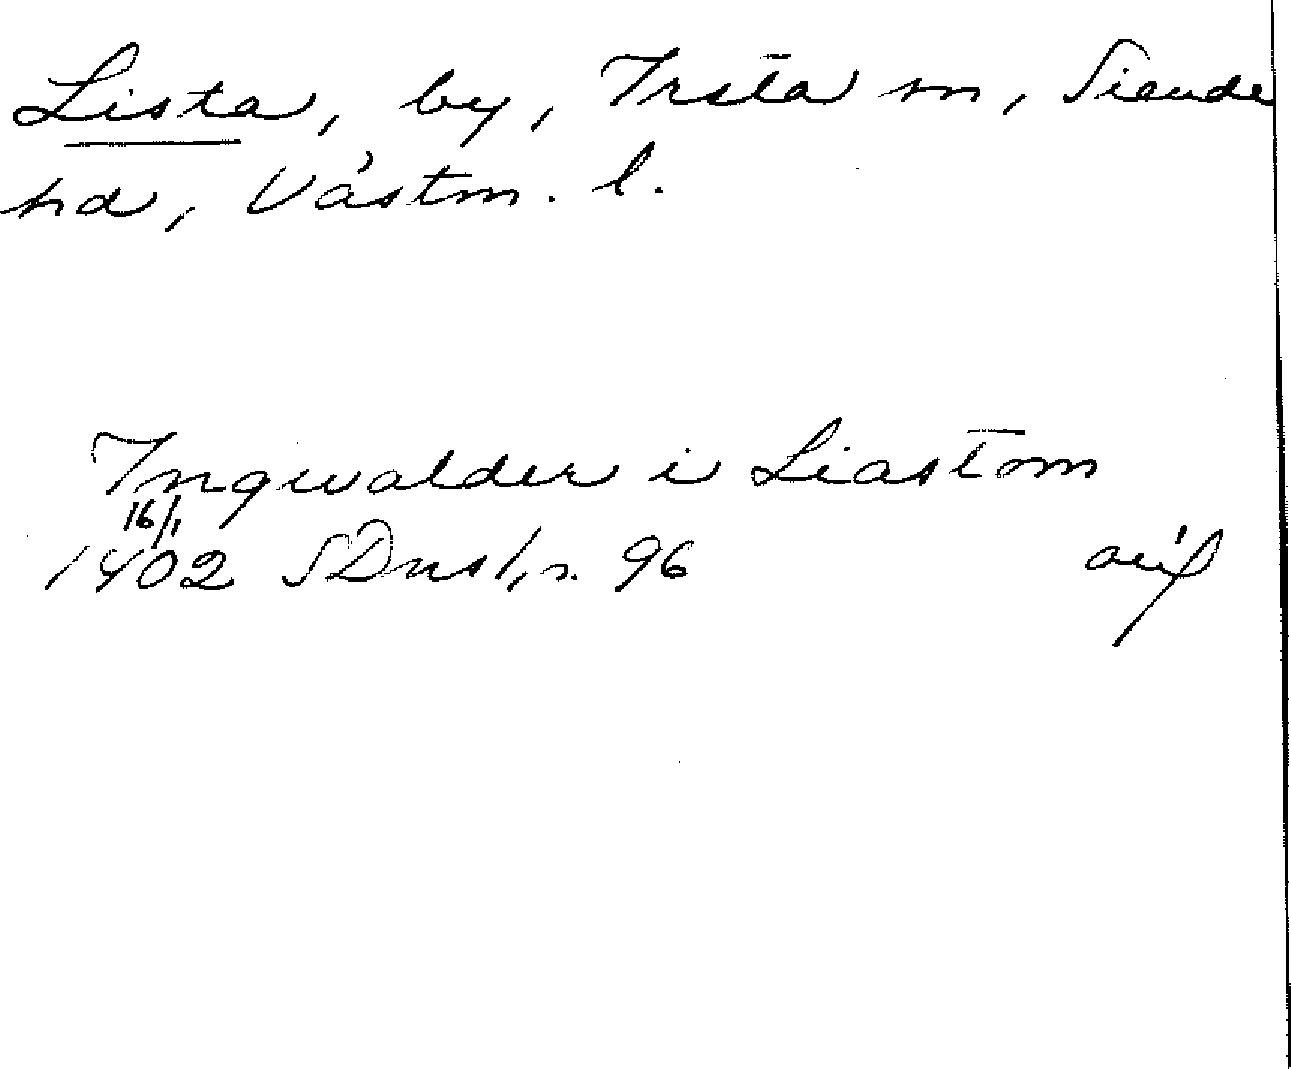 Lista, by, Irsta sn, Siende
hd, Västm. l.
Ingwalder i Liastom
16/1
1402 SDns 1, s. 96